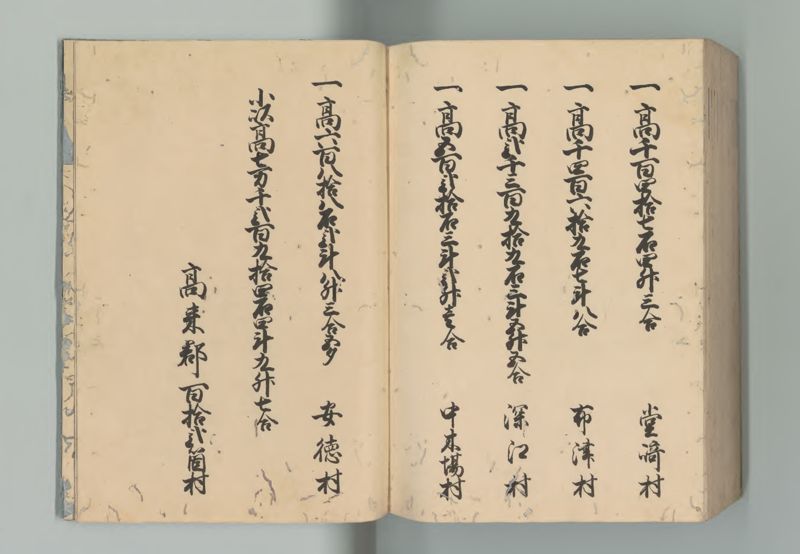 一高千百四拾七石四升三合 堂崎村
一高千四百六拾九石七斗八合 布津村
一高弐千三百九拾九石三斗五升五合 深江村
一高五百弐拾石三斗弐升壱合 中木場村
一高六百八拾八石弐斗八升三合五夕 安徳村
小以高七万千弐百九拾四石四斗九升七合
高来郡百拾弐箇村